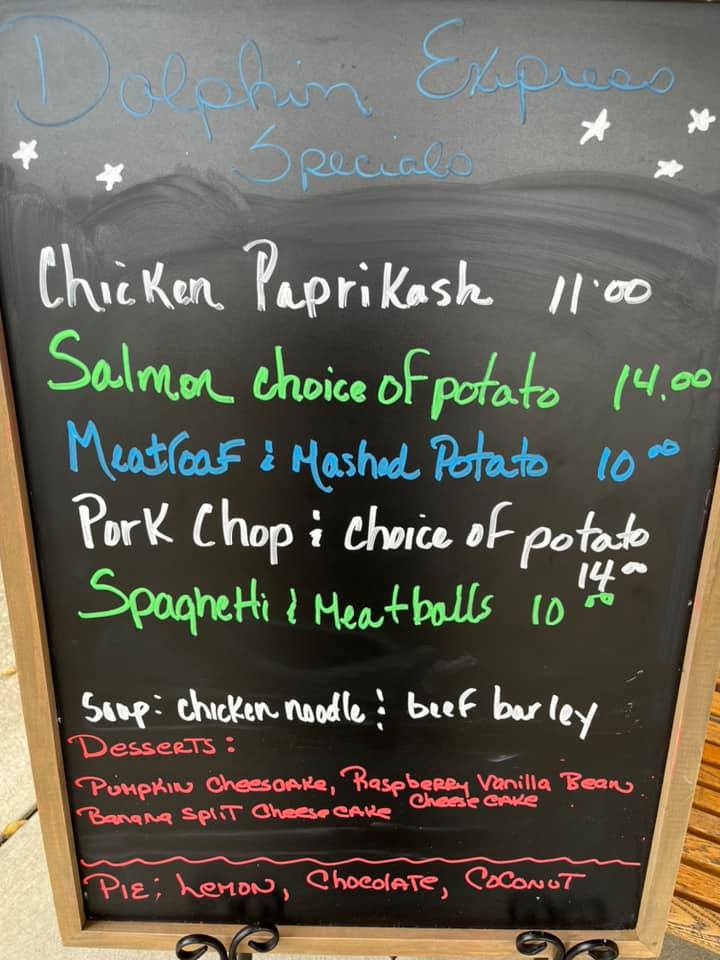 Dolphin Express
Specials
Chicken Paprikash 11.00
Salmon choice of potato 14.00
Meatloaf & Mashed Potato 10 00
Pork Chop & choice of potato
14 00
Spaghetti & Meatballs 10 00
Soup: chicken noodle & beef barley
Desserts:
Pumpkin Cheescake, Raspberry Vanilla Bean
Cheese cake
Banana Split Cheese cake
Pie; Lemon, Chocolate, Coconut